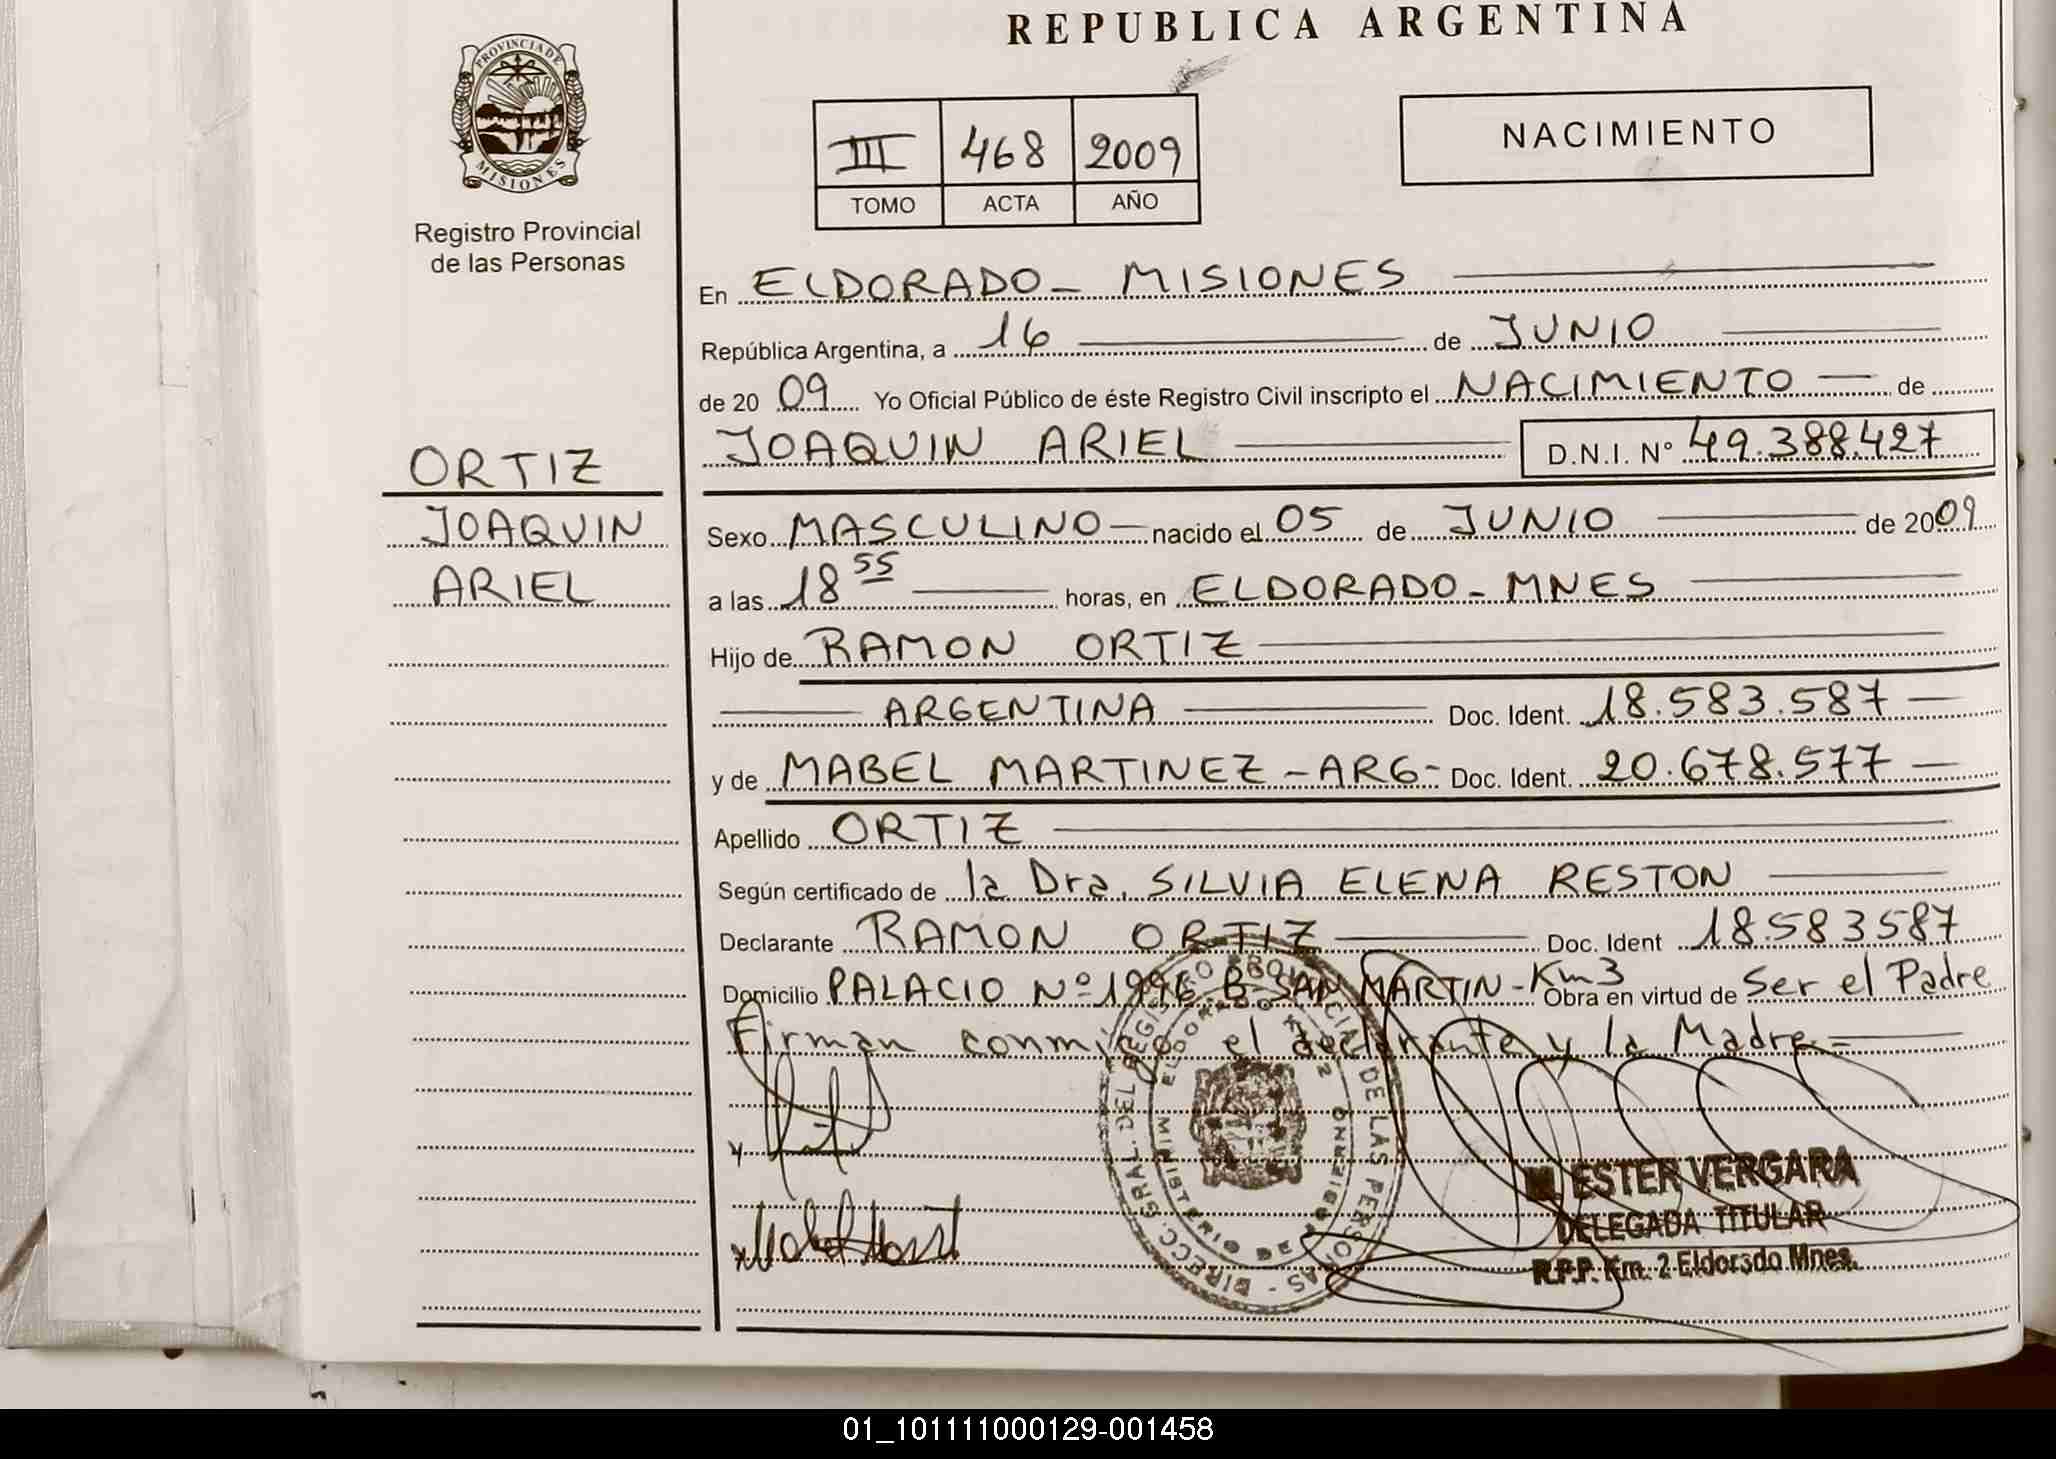 REPUBLICA ARGENTINA
PROVINCIA DE
MISIONES
Registro Provincial
de las Personas
III 468 2009
TOMO ACTA AÑO
NACIMIENTO
En ELDORADO - MISIONES
República Argentina, a 16 de JUNIO
de 2009 Yo Oficial Público de éste Registro Civil inscripto el NACIMIENTO de
JOAQUIN ARIEL D.N.I. Nº 49.388.427
ORTIZ
JOAQUIN
ARIEL
Sexo MASCULINO nacido el 05 de JUNIO de 2009
a las 18 55 horas, en ELDORADO - MNES
Hijo de RAMON ORTIZ
ARGENTINA Doc. Ident. 18.583.587
y de MABEL MARTINEZ - ARG - Doc. Ident. 20.678.577
Apellido ORTIZ
Según certificado de la Dra. SILVIA ELENA RESTON
Declarante RAMON ORTIZ Doc. Ident 18.583587
Domicilio PALACIO Nº 1996 Bº SAN MARTIN - Km3 Obra en virtud de Ser el Padre
Firman conmigo el declarante y la Madre =
DIRECC. GRAL. DEL REGISTRO PROVINCIAL DE LAS PERSONAS
ELDORADO KM 2
MINISTERIO DE GOBIERNO
ESTER VERGARA
DELEGADA TITULAR
R.P.P. Km. 2 Eldorado Mnes.
01_101111000129-001458